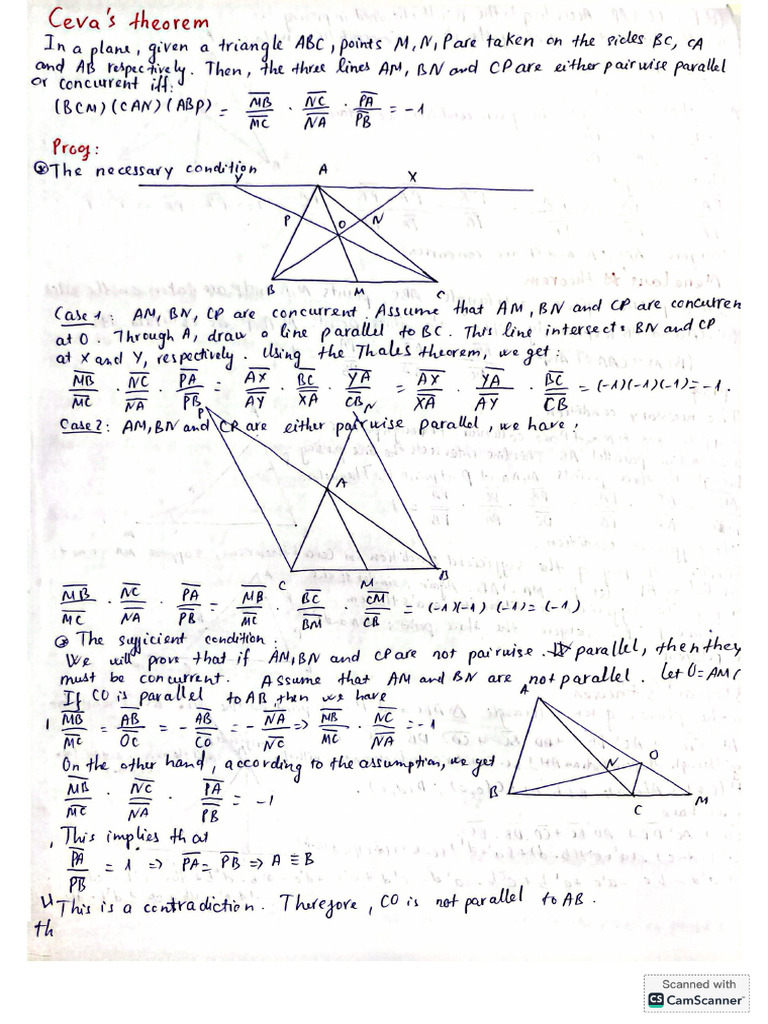 Ceva's theorem
In a plane, given a triangle ABC, points M, N, P are taken on the sides BC, CA
and AB respectively. Then, the three lines AM, BN and CP are either pairwise parallel
or concurrent iff:
(BCM)(CAN)(ABP) = MB/MC · NC/NA · PA/PB = -1
Proof:
* The necessary condition
Y A X
P O N
B M C
Case 1: AM, BN, CP are concurrent. Assume that AM, BN and CP are concurren
at O. Through A, draw a line parallel to BC. This line intersects BN and CP
at X and Y, respectively. Using the Thales theorem, we get:
MB/MC · NC/NA · PA/PB = AX/AY · BC/XA · YA/CB = AX/XA · YA/AY · BC/CB = (-1)(-1)(-1) = -1.
P N
Case 2: AM, BN and CP are either pairwise parallel, we have:
A
C M B
MB/MC · NC/NA · PA/PB = MB/MC · BC/BM · CM/CB = (-1)(-1)(-1) = (-1)
* The sufficient condition.
We will prove that if AM, BN and CP are not pairwise parallel, then they
must be concurrent. Assume that AM and BN are not parallel. Let O = AM
If CO is parallel to AB, then we have
MB/MC = AB/OC = - AB/CO = - NA/NC => MB/MC · NC/NA = -1
A
N O
B C M
On the other hand, according to the assumption, we get
MB/MC · NC/NA · PA/PB = -1
This implies that
PA/PB = 1 => PA = PB => A ≡ B
This is a contradiction. Therefore, CO is not parallel to AB.
th
Scanned with
CS CamScanner